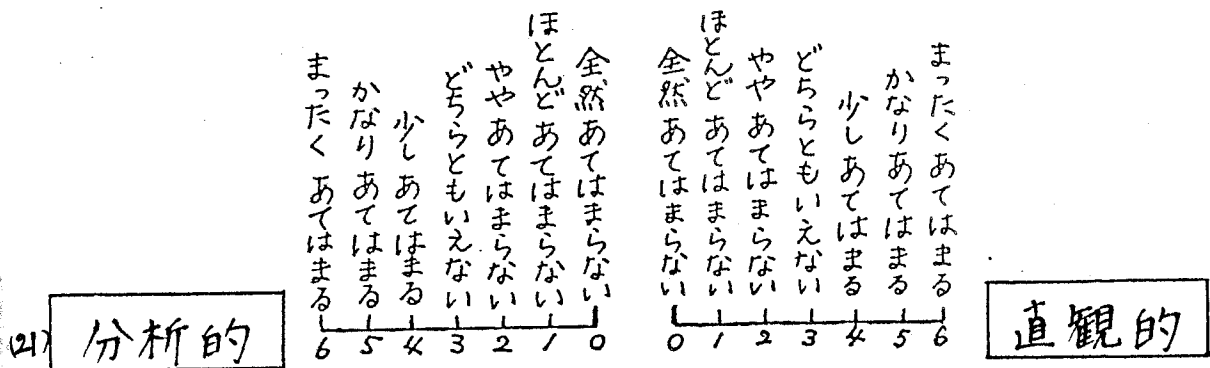 (21)
分析的
まったくあてはまる
かなりあてはまる
少しあてはまる
どちらともいえない
ややあてはまらない
ほとんどあてはまらない
全然あてはまらない
6 5 4 3 2 1 0
全然あてはまらない
ほとんどあてはまらない
ややあてはまらない
どちらともいえない
少しあてはまる
かなりあてはまる
まったくあてはまる
0 1 2 3 4 5 6
直観的